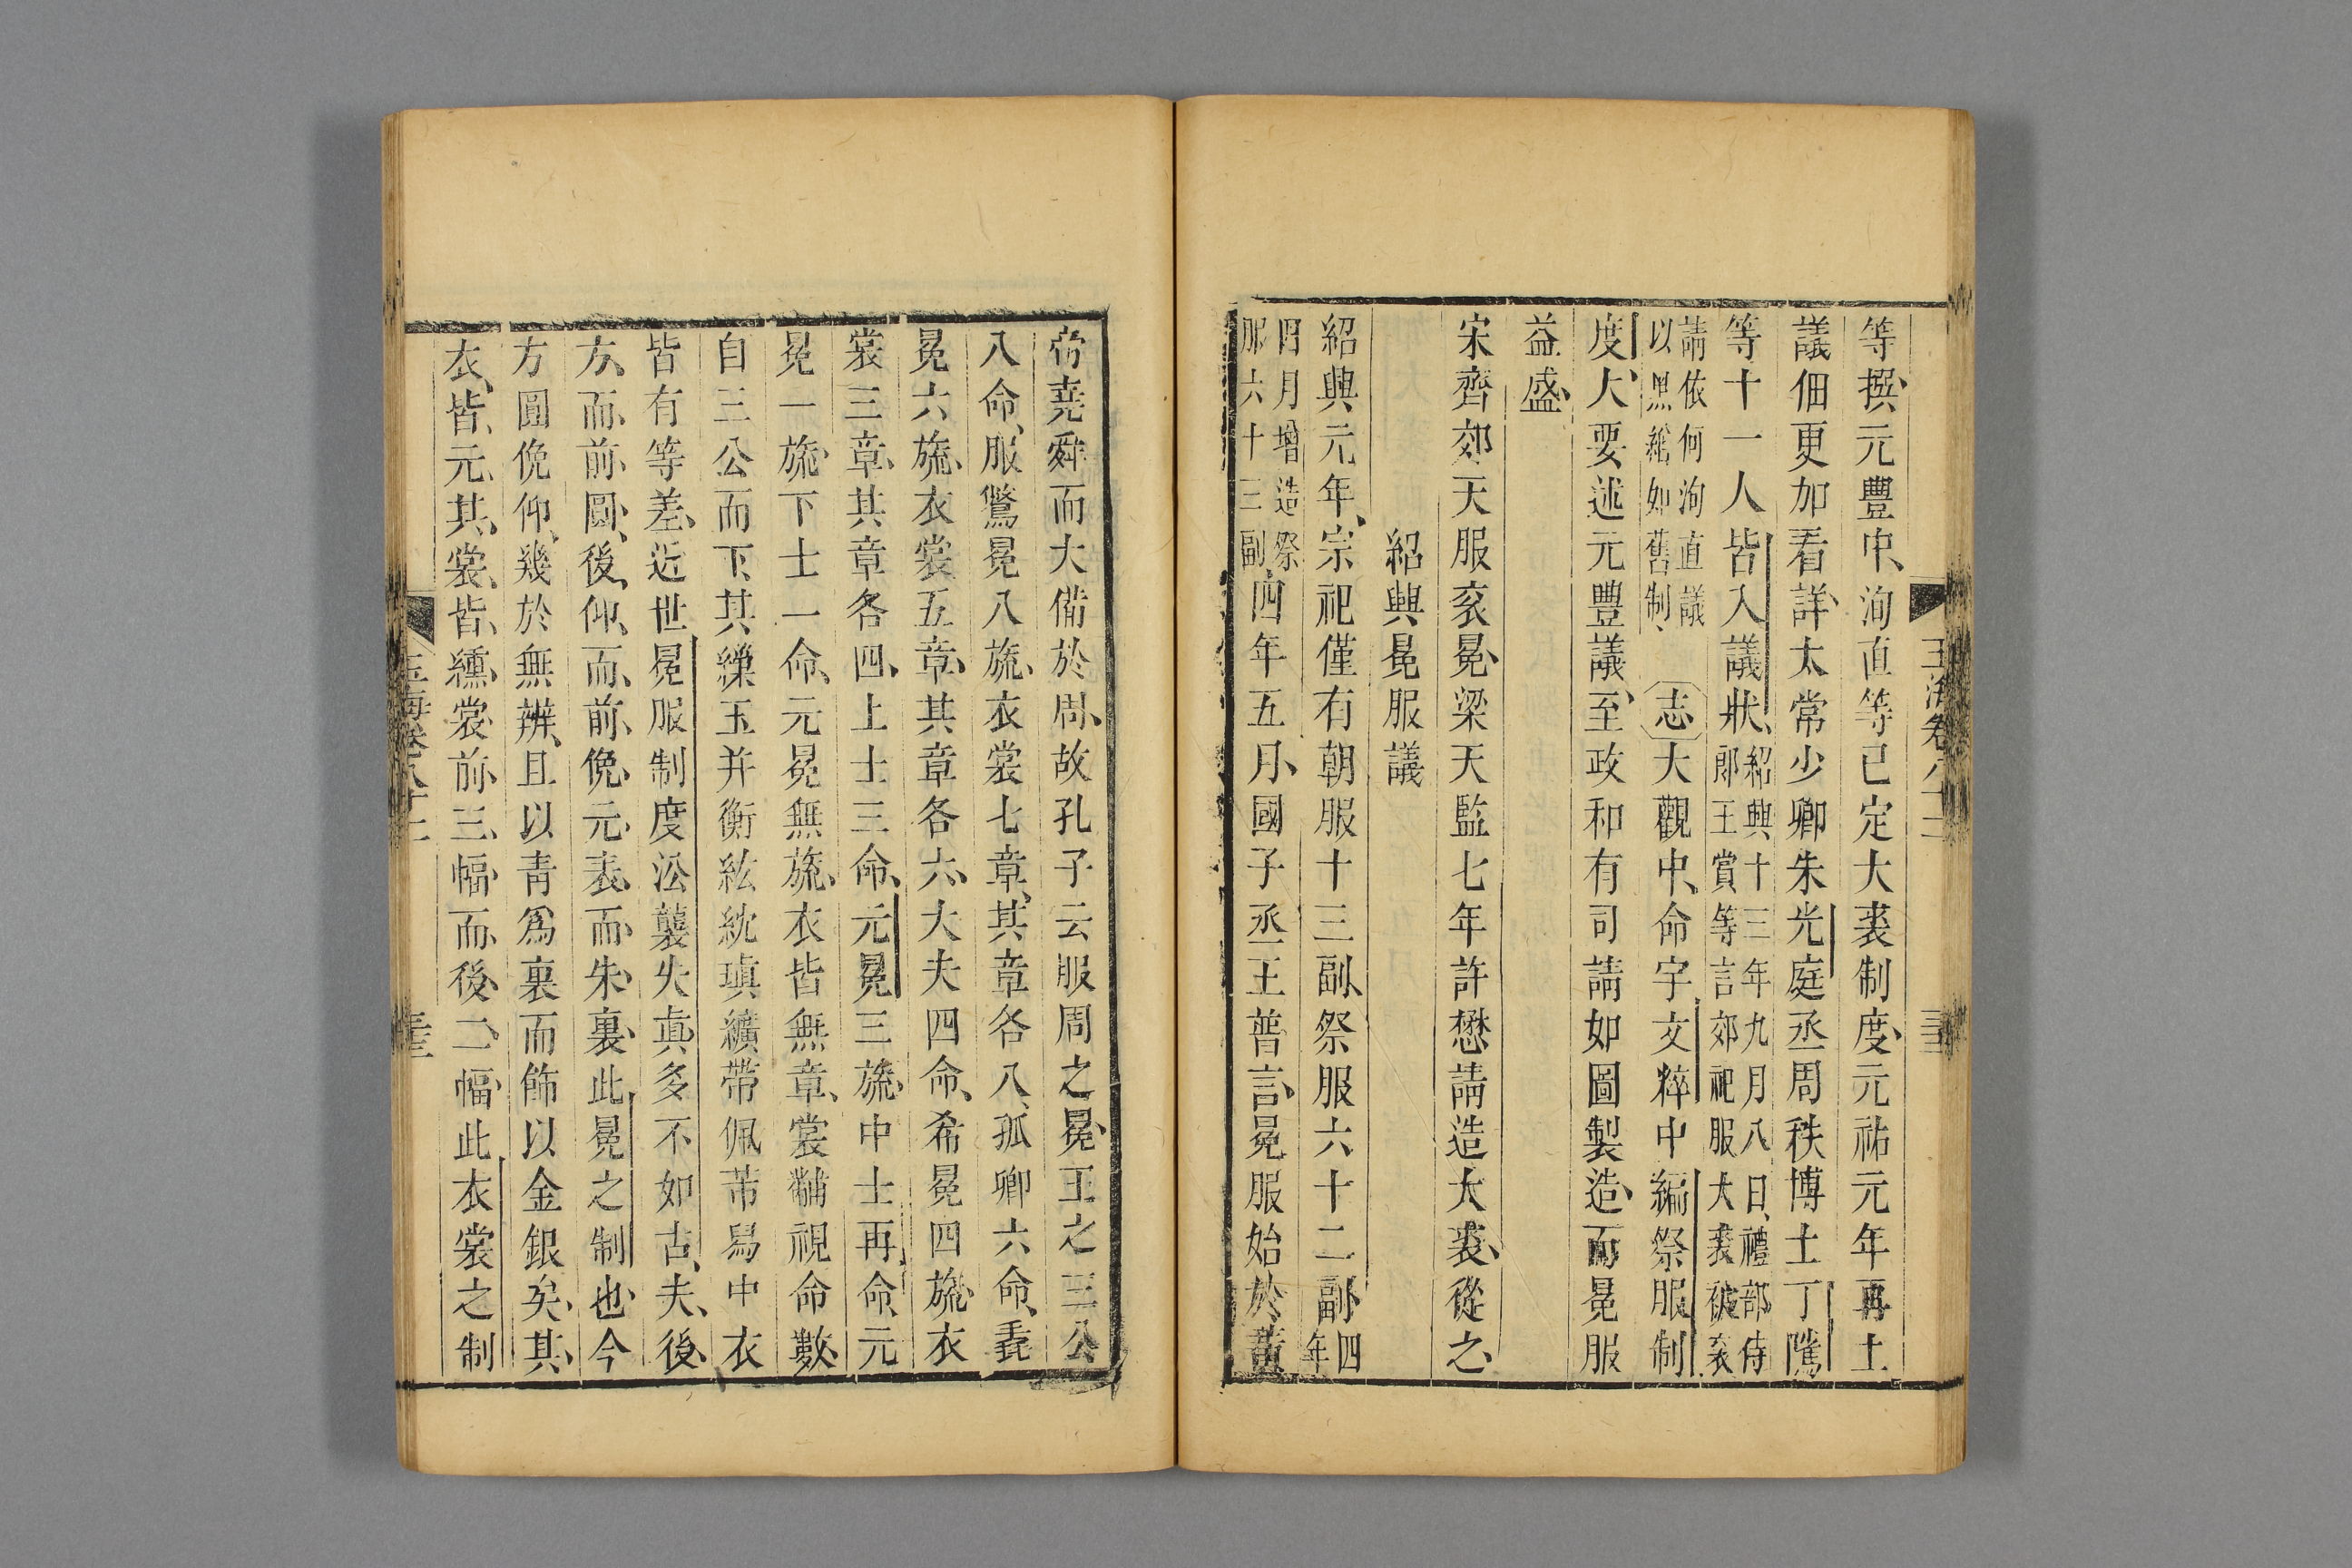 等撰元豐中洵直等已定大裘制度元祐元年再土
議佃更加看詳太常少卿朱光庭丞周秩博士丁隲
等十一人皆入議狀紹興十三年九月八日禮部侍
郎王賞等言郊祀服大裘被衮
請依何洵直議
以黑繒如舊制
志大觀中命宇文粹中編祭服制
度大要述元豐議至政和有司請如圖製造而冕服
益盛
宋齊郊天服衮冕梁天監七年許懋請造大裘從之
紹興冕服議
紹興元年宗祀僅有朝服十三副祭服六十二副四
年
四月增造祭
服六十三副四年五月國子丞王普言冕服始於黃
玉海卷八十二
帝堯舜而大備於周故孔子云服周之冕王之三公
八命服鷩冕八旒衣裳七章其章各八孤卿六命毳
冕六旒衣裳五章其章各六大夫四命希冕四旒衣
裳三章其章各四上士三命元冕三旒中士再命元
冕一旒下士一命元冕無旒衣皆無章裳黼視命數
自三公而下其繅玉并衡紘紞瑱纊帶佩芾舄中衣
皆有等差近世冕服制度沿襲失真多不如古夫後
方而前圓後仰而前俛元表而朱裏此冕之制也今
方圓俛仰幾於無辨且以青爲裏而飾以金銀矣其
衣皆元其裳皆纁裳前三幅而後二幅此衣裳之制
玉海卷八十二